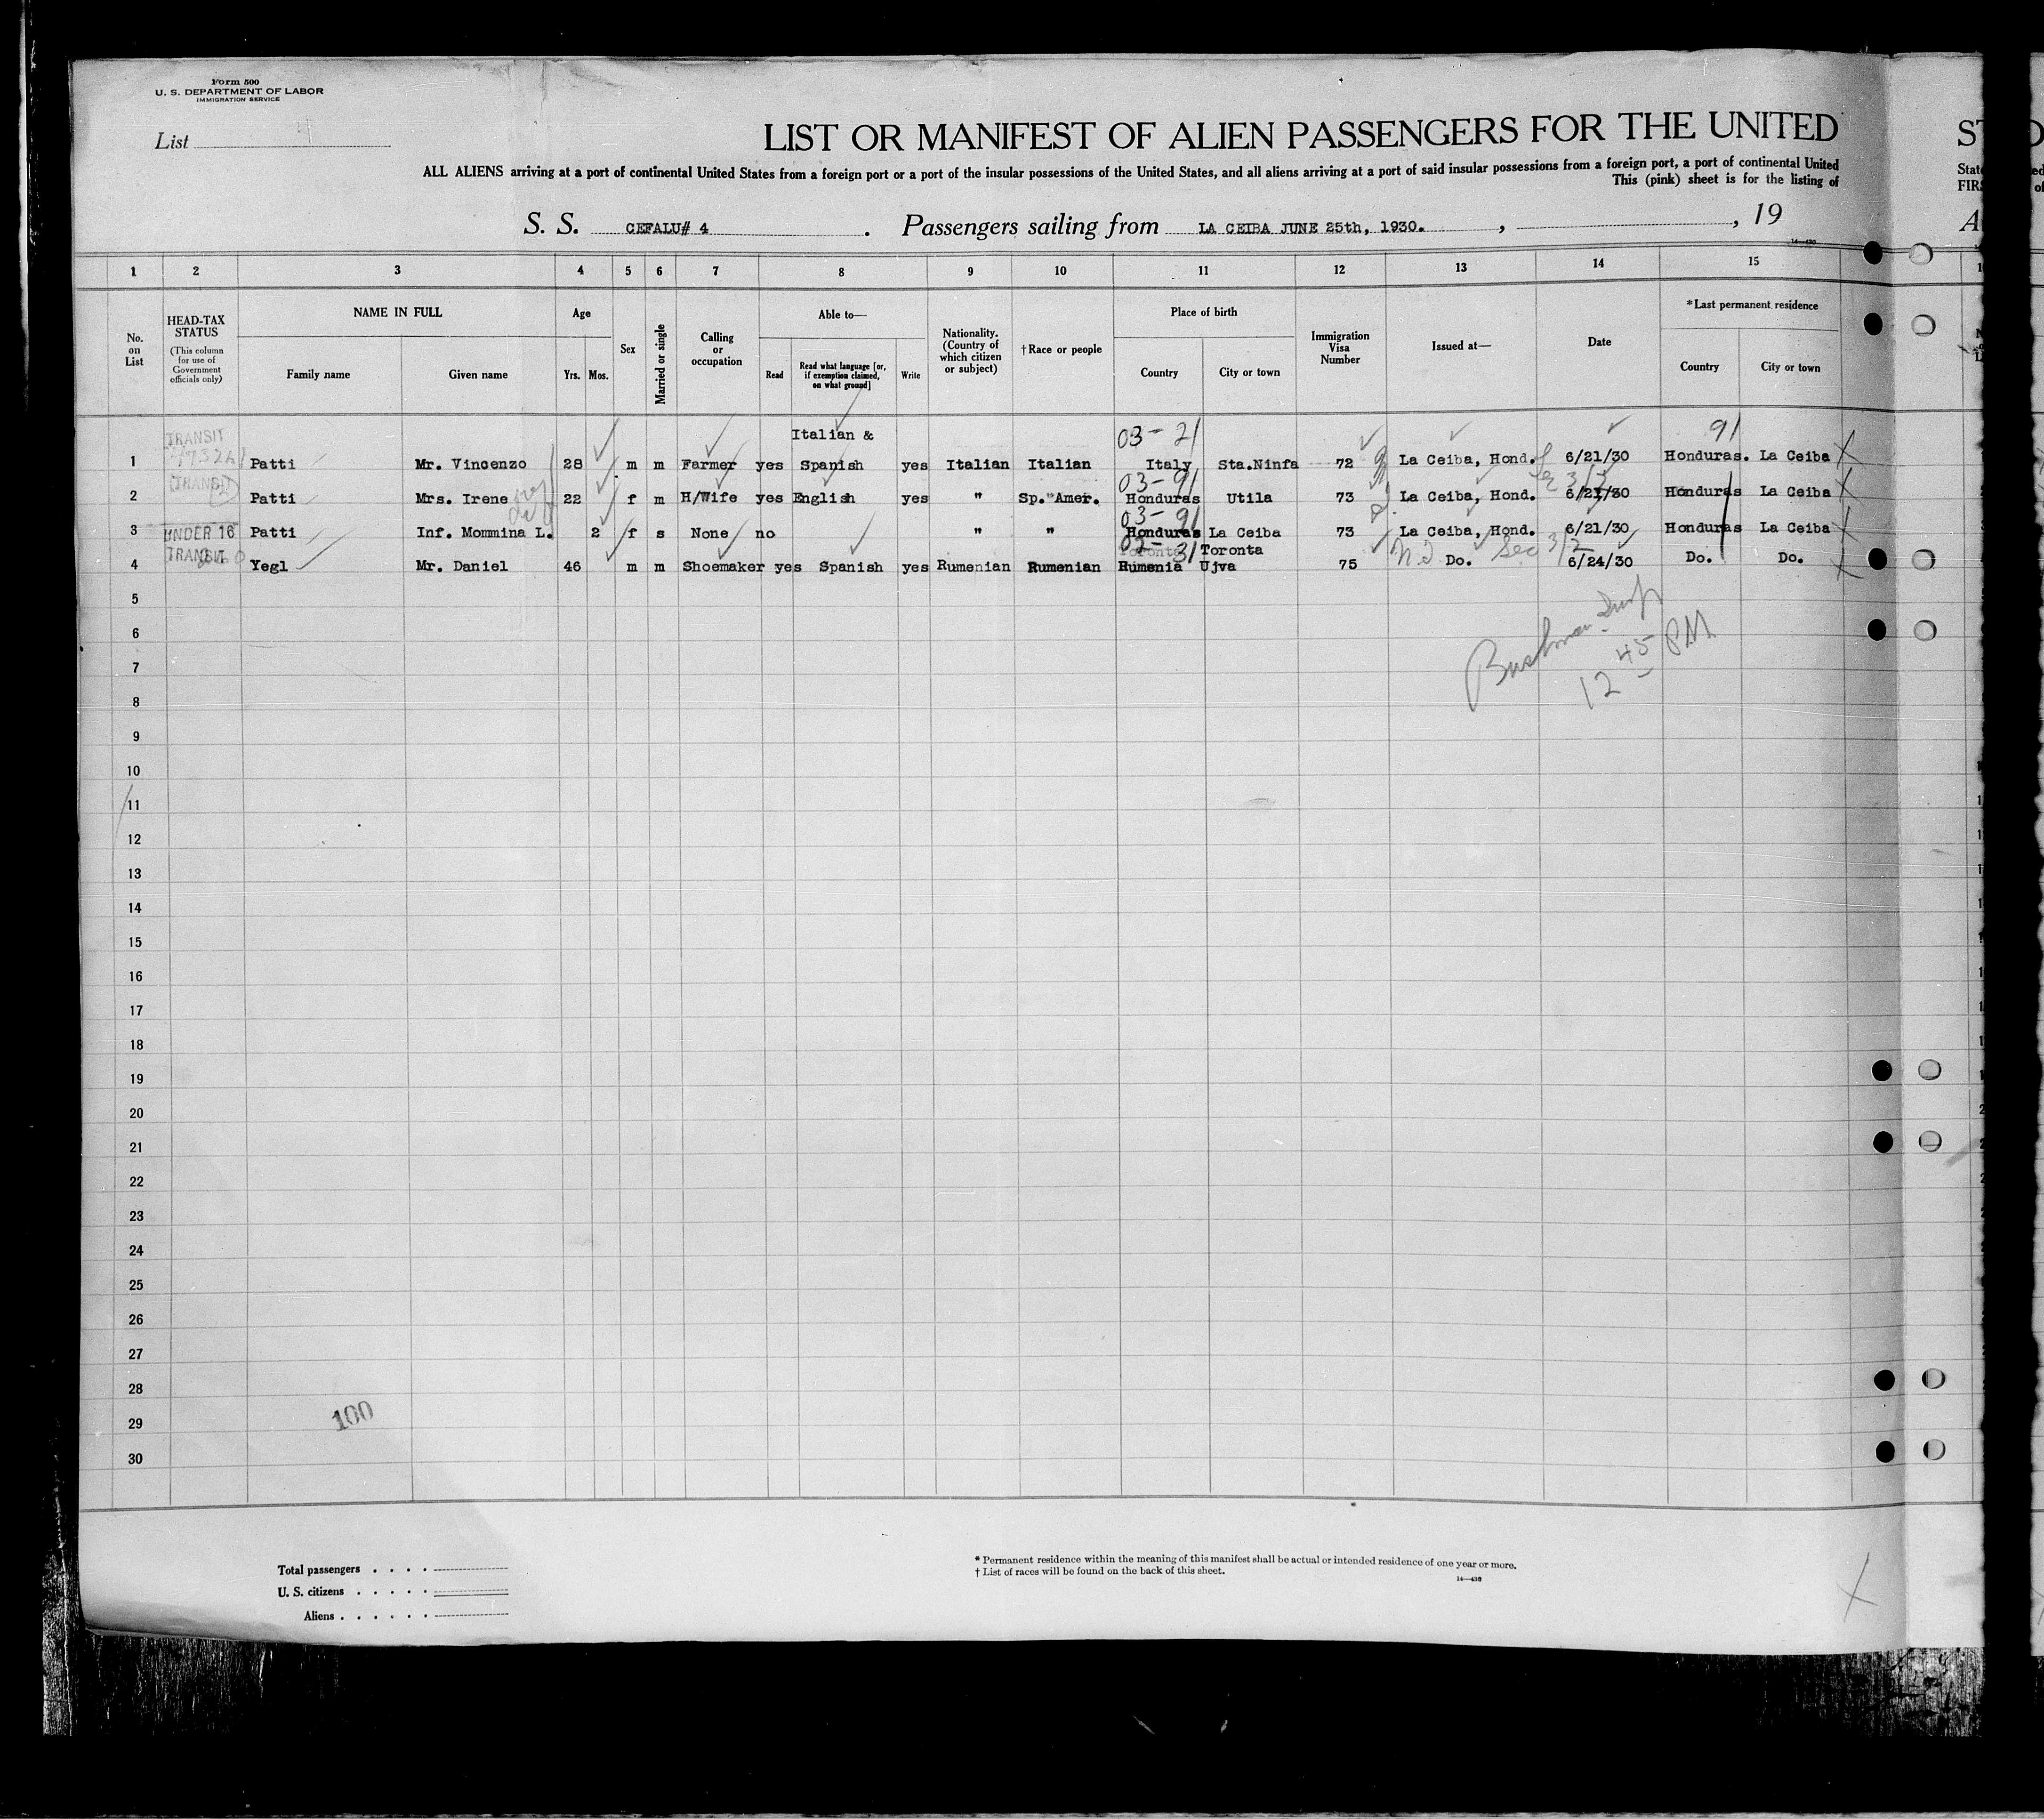 Form 500
U. S. DEPARTMENT OF LABOR
IMMIGRATION SERVICE
List
LIST OR MANIFEST OF ALIEN PASSENGERS FOR THE UNITED
ALL ALIENS arriving at a port of continental United States from a foreign port or a port of the insular possessions of the United States, and all aliens arriving at a port of said insular possessions from a foreign port, a port of continental United
This (pink) sheet is for the listing of
S. S. CEFALU# 4 . Passengers sailing from LA CEIBA JUNE 25th, 1930. , , 19
14—430
1 2 3 4 5 6 7 8 9 10 11 12 13 14 15
No. on List
HEAD-TAX STATUS
(This column for use of Government officials only)
NAME IN FULL
Family name Given name
Age
Yrs. Mos.
Sex
Married or single
Calling or occupation
Able to—
Read
Read what language [or, if exemption claimed, on what ground]
Write
Nationality. (Country of which citizen or subject)
†Race or people
Place of birth
Country City or town
Immigration Visa Number
Issued at—
Date
*Last permanent residence
Country City or town
TRANSIT Italian & 03-21 91
1 Patti Mr. Vincenzo 28 m m Farmer yes Spanish yes Italian Italian Italy Sta.Ninfa 72 La Ceiba, Hond. 6/21/30 Honduras. La Ceiba
TRANSIT 03-91
2 Patti Mrs. Irene 22 f m H/Wife yes English yes " Sp. Amer. Honduras Utila 73 La Ceiba, Hond. 6/21/30 Honduras La Ceiba
03-91
3 UNDER 16 Patti Inf. Mommina L. 2 f s None no " " Honduras La Ceiba 73 La Ceiba, Hond. 6/21/30 Honduras La Ceiba
TRANSIT 03-31 Toronta Sec 3/2
4 Yegl Mr. Daniel 46 m m Shoemaker yes Spanish yes Rumenian Rumenian Rumenia Ujva 75 Do. 6/24/30 Do. Do.
5
6
7
8
9
10
11
12
13
14
15
16
17
18
19
20
21
22
23
24
25
26
27
28
29
30
Bushman
12 45 PM
100
Total passengers
U. S. citizens
Aliens
* Permanent residence within the meaning of this manifest shall be actual or intended residence of one year or more.
† List of races will be found on the back of this sheet.
14—430